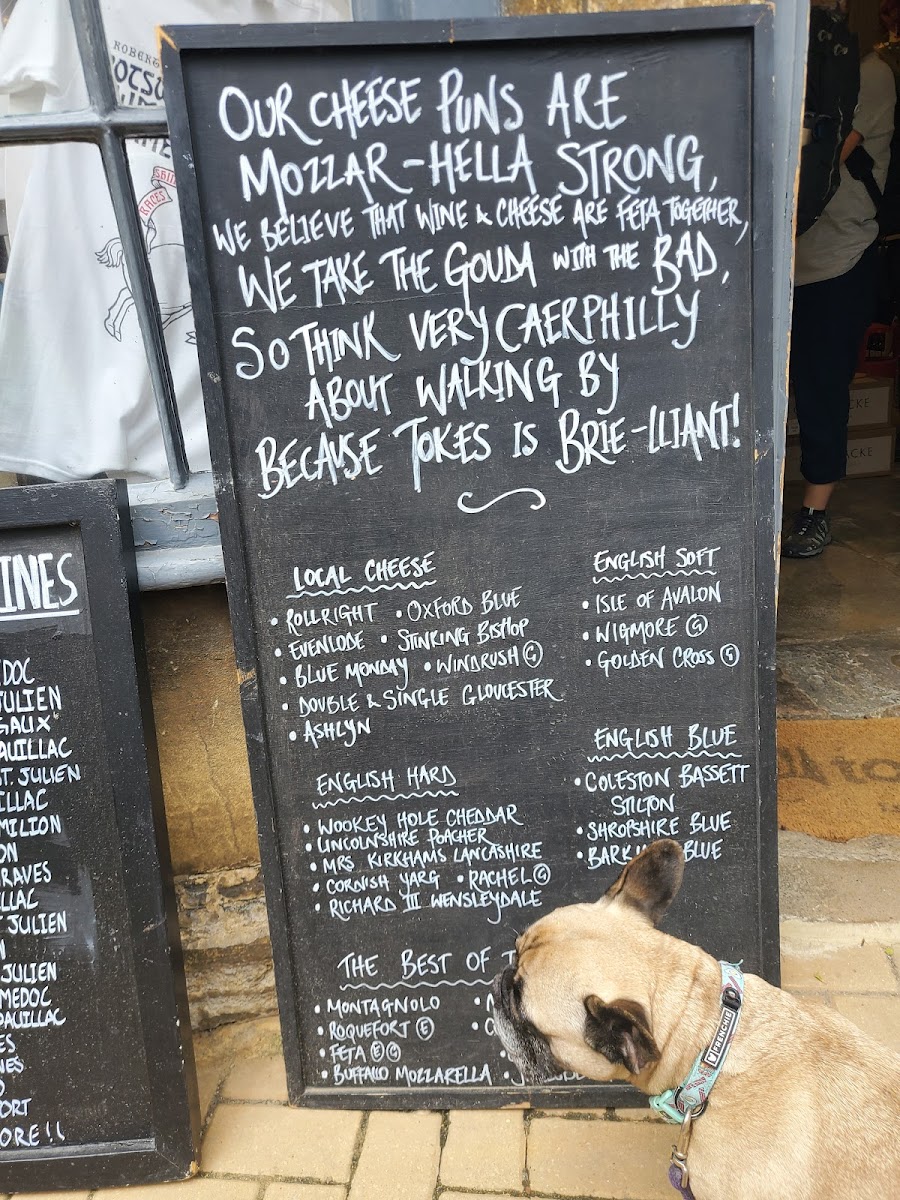 OUR CHEESE PUNS ARE
MOZZAR-HELLA STRONG,
WE BELIEVE THAT WINE & CHEESE ARE FETA TOGETHER,
WE TAKE THE GOUDA WITH THE BAD,
SO THINK VERY CAERPHILLY
ABOUT WALKING BY
BECAUSE TOKES IS BRIE-LLIANT!
LOCAL CHEESE
• ROLLRIGHT • OXFORD BLUE
• EVENLODE • STINKING BISHOP
• BLUE MONDAY • WINDRUSH Ⓖ
• DOUBLE & SINGLE GLOUCESTER
• ASHLYN
ENGLISH SOFT
• ISLE OF AVALON
• WIGMORE Ⓖ
• GOLDEN CROSS Ⓖ
ENGLISH HARD
• WOOKEY HOLE CHEDDAR
• LINCOLNSHIRE POACHER
• MRS KIRKHAMS LANCASHIRE
• CORNISH YARG • RACHEL Ⓖ
• RICHARD III WENSLEYDALE
ENGLISH BLUE
• COLESTON BASSETT
STILTON
• SHROPSHIRE BLUE
• BARK BLUE
THE BEST OF
• MONTAGNOLO
• ROQUEFORT Ⓔ
• FETA Ⓔ Ⓖ
• BUFFALO MOZZARELLA •
INES
DOC
JULIEN
GAUX
AUILLAC
ST JULIEN
ILLAC
MILION
ON
RAVES
LLAC
T JULIEN
N
JULIEN
MEDOC
PAUILLAC
ES
NES
O
ORT
ORE!!
ROBERT
OTSW
RACES
FRENCHIE
CKE
ACKE
to